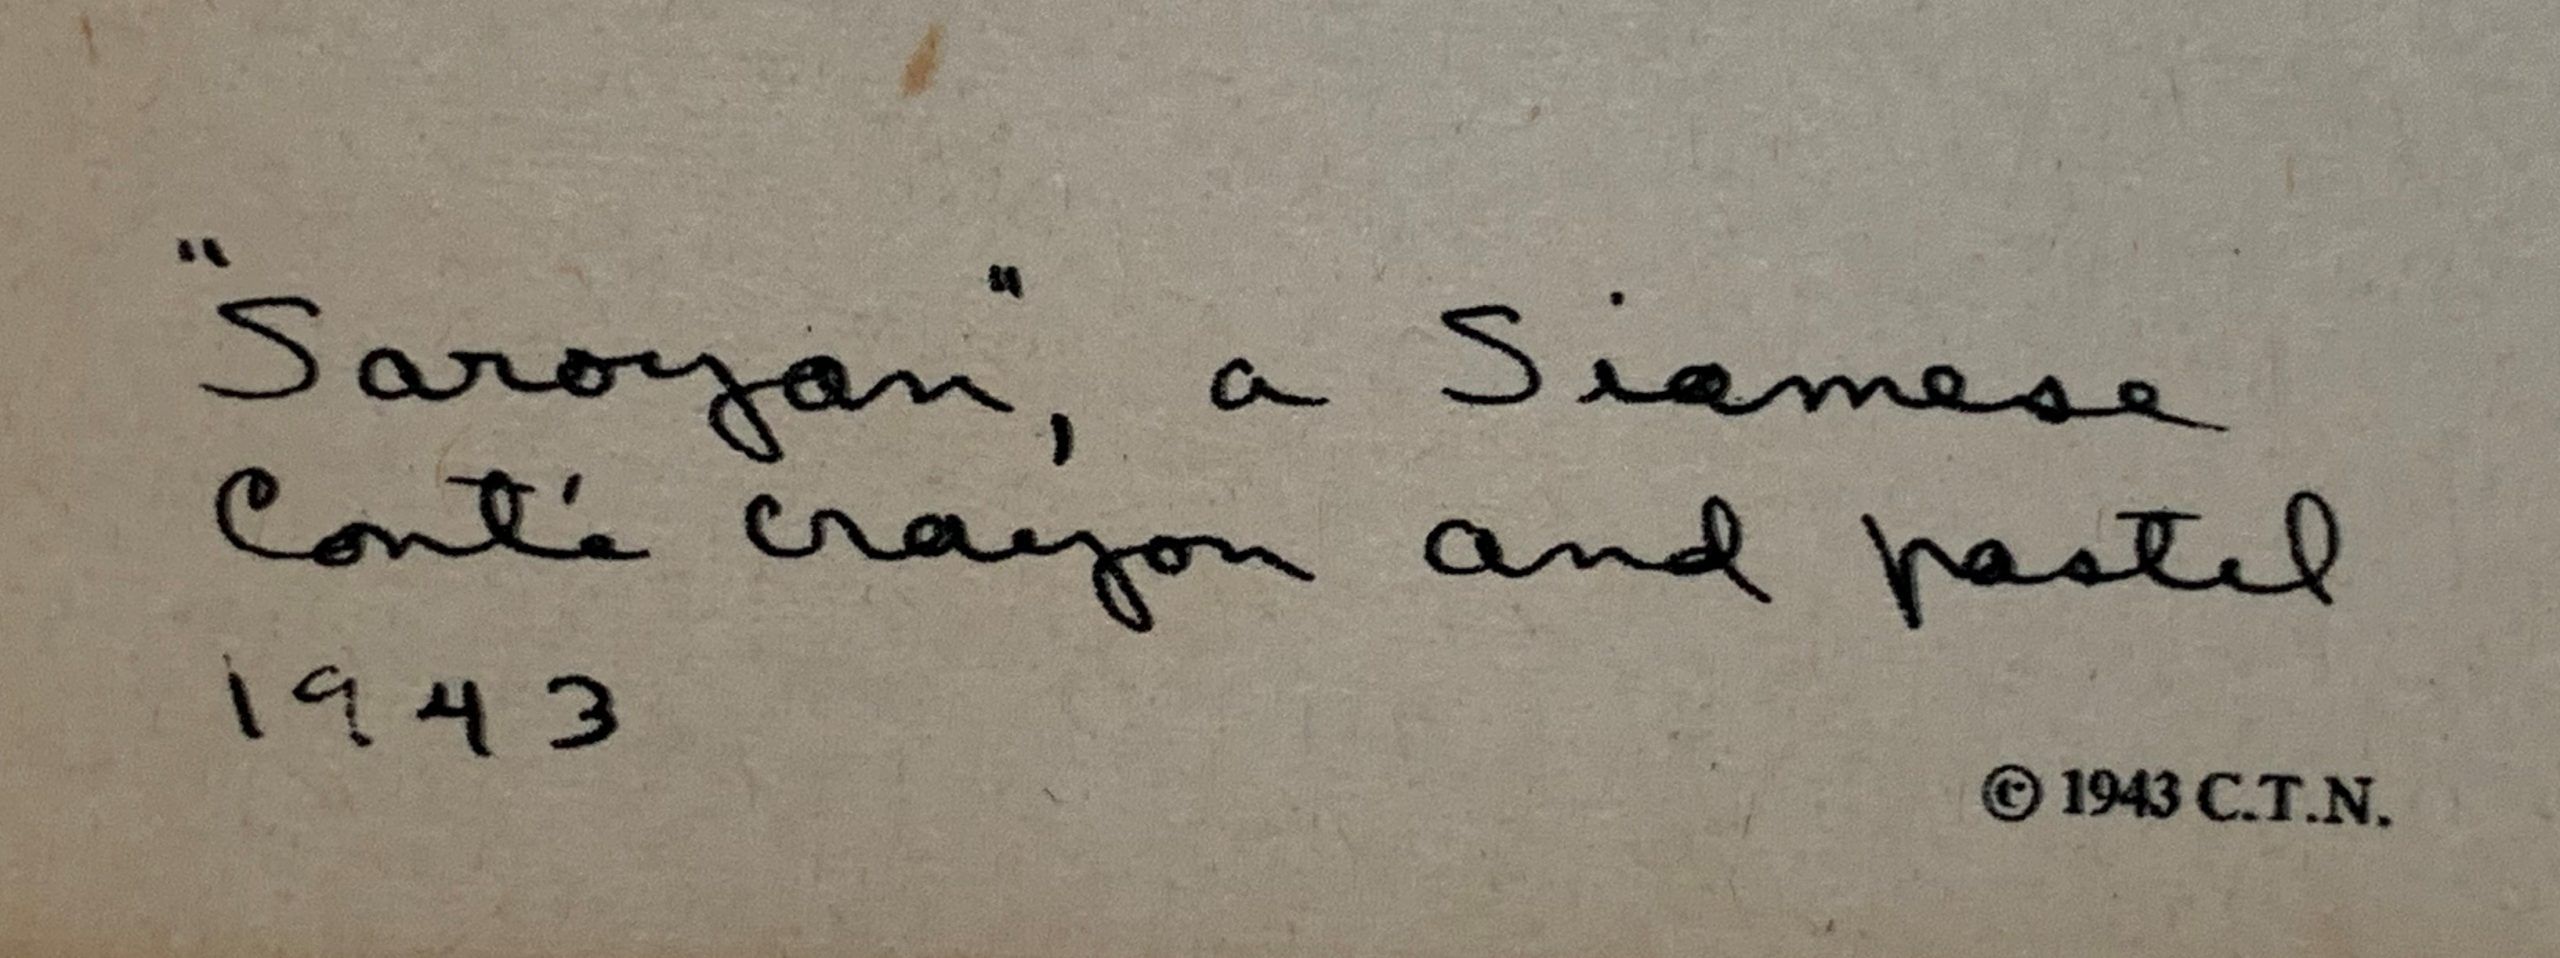 "Saroyan", a Siamese
Conté crayon and pastel
1943
© 1943 C.T.N.